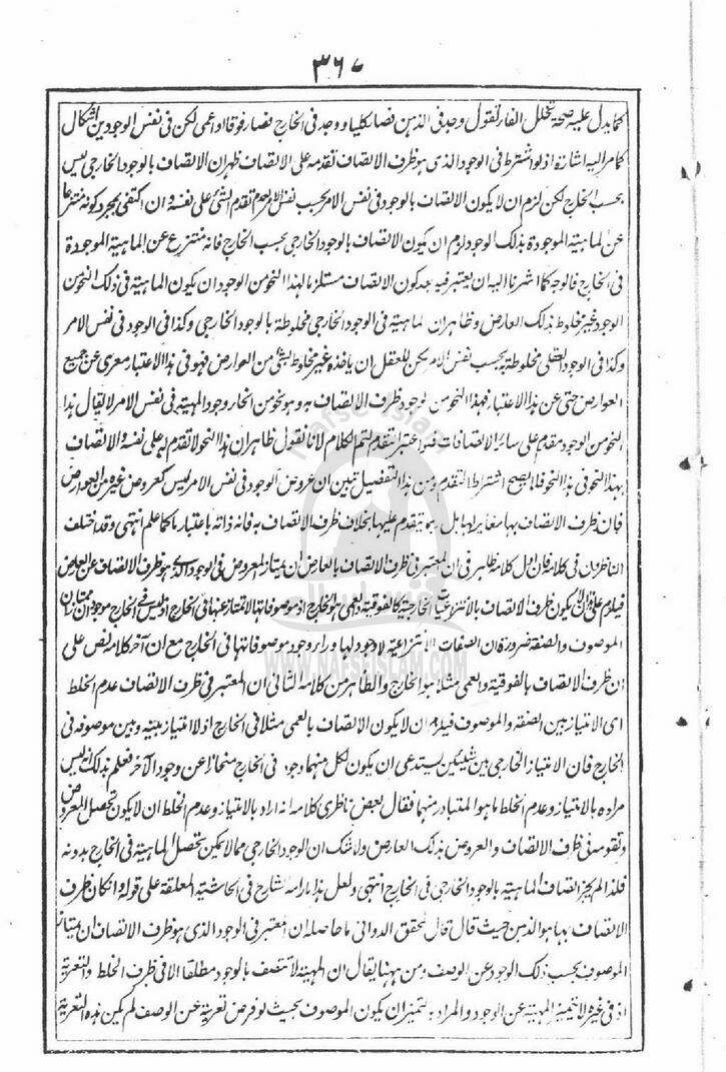 ٣٦٧
كما يدل عليه صحة تخلل الفاء لقول وجد فى الذهن فصار كليا ووجد فى الخارج فصار فوقا او اعمى لكن فى نفس الوجودين اشكال
كما مر اليه اشارة اذ لو اشترط فى الوجود الذى هو ظرف الاتصاف تقدمه على الاتصاف ظهر ان الاتصاف بالوجود الخارجى ليس
بحسب الخارج لكن لزم ان لا يكون الاتصاف بالوجود فى نفس الامر بحسب نفس الامر لعدم تقدم الشئ على نفسه وان اكتفى بمجرد كونه منتزعا
عن الماهية الموجودة بذلك الوجود لزم ان يكون الاتصاف بالوجود الخارجى بحسب الخارج فانه منتزع عن الماهية الموجودة
فى الخارج فالوجه كما اشرنا اليه ان يعتبر فيه بعد كون الاتصاف مستلزما لهذا النحو من الوجود ان يكون الماهية فى ذلك النحو من
الوجود غير مخلوط بذلك العارض وظاهر ان الماهية فى الوجود الخارجى مخلوطة بالوجود الخارجى وكذا فى الوجود فى نفس الامر
وكذا فى الوجود العقلى مخلوطة به بحسب نفس الامر لكن للعقل ان ياخذه غير مخلوط بشئ من العوارض فهو فى هذا الاعتبار معرى عن جميع
العوارض حتى عن هذا الاعتبار فهذا النحو من الوجود ظرف الاتصاف به وهو نحو من انحاء وجود المهية فى نفس الامر لا يقال هذا
النحو من الوجود مقدم على سائر الاتصافات فلو اعتبر التقدم لتم الكلام لانا نقول ظاهر ان هذا النحو لا تقدم له على نفسه والاتصاف
بهذا النحو فى هذا النحو فلا يصح اشتراط التقدم ومن هذا التفصيل تبين ان عروض الوجود فى نفس الامر ليس كعروض غيره من العوارض
فان ظرف الاتصاف بها مغاير لها بل يتقدم عليها بخلاف ظرف الاتصاف به فانه ذاته باعتبار ما كما علم انتهى وقد اختلف
الناظرون فى كلامه فان اول كلامه ظاهر فى ان المعتبر فى ظرف الاتصاف بالعارض ان يمتاز المعروض فى الوجود الذى هو ظرف الاتصاف عن العارض
فيلزم على ان لا يكون ظرف الاتصاف بالانتزاعيات الخارجية كالفوقية والعمى هو الخارج اذ موصوفاتها لا تمتاز عنها فى الخارج اذ ليس فى الخارج موجودان ممتازان
الموصوف والصفة ضرورة ان الصفات الانتزاعية لا وجود لها وراء وجود موصوفاتها فى الخارج مع ان آخر كلامه نص على
ان ظرف الاتصاف بالفوقية والعمى مثلا هو الخارج والظاهر من كلامه الثانى ان المعتبر فى ظرف الاتصاف عدم الخلط
اى الامتياز بين الصفة والموصوف فيلزم ان لا يكون الاتصاف بالعمى مثلا فى الخارج اذ لا امتياز بينه وبين موصوفه فى
الخارج فان الامتياز الخارجى بين شيئين يستدعى ان يكون لكل منهما وجود فى الخارج منحازا عن وجود الآخر فعلم بذلك انه ليس
مراده بالامتياز وعدم الخلط ما هو المتبادر منهما فقال بعض ناظرى كلامه انه اراد بالامتياز وعدم الخلط ان لا يكون تحصيل المعروض
وتقومه فى ظرف الاتصاف والعروض بذلك العارض ولا شك ان الوجود الخارجى مما لا يمكن تحصل الماهية فى الخارج بدونه
فلذا لم يجز اتصاف الماهية بالوجود الخارجى فى الخارج انتهى ولعل هذا مارامه الشارح فى الحاشية المعلقة على قوله وان كان ظرف
الاتصاف بها هو الذهن حيث قال قال المحقق الدوانى ما حاصله ان المعتبر فى الوجود الذى هو ظرف الاتصاف ان يمتاز
الموصوف بحسب ذلك الوجود عن الوصف ومن ههنا يقال ان المهية لا تتصف بالوجود مطلقا الا فى ظرف الخلط والتعرية
اذ فى غيره لا تتميز المهية عن الوجود والمراد بتميز ان يكون الموصوف بحيث لو فرض تعرية عن الوصف لم يكن هذه التعرية
Nafse Islam
WWW.NAFSEISLAM.COM